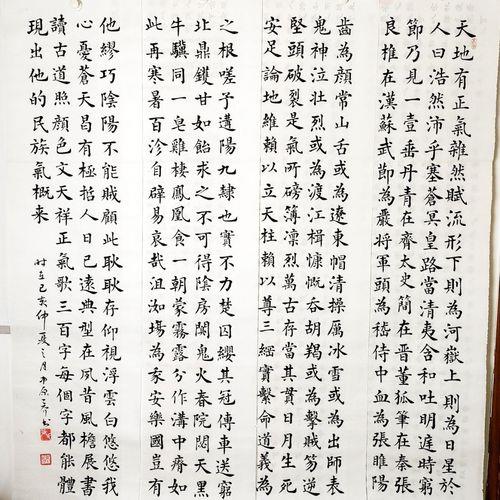 天地有正氣雜然賦流形下則為河嶽上則為日星於
人曰浩然沛乎塞蒼冥皇路當清夷含和吐明庭時窮
節乃見一壹垂丹青在齊太史簡在晉董狐筆在秦張
良椎在漢蘇武節為嚴將軍頭為嵇侍中血為張睢陽
齒為顏常山舌或為遼東帽清操厲冰雪或為出師表
鬼神泣壯烈或為渡江楫慷慨吞胡羯或為擊賊笏逆
堅頭破裂是氣所磅簿凜烈萬古存當其貫日月生死
安足論地維賴以立天柱賴以尊三綱實繫命道義為
之根嗟予遘陽九隸也實不力楚囚纓其冠傳車送窮
北鼎鑊甘如飴求之不可得陰房闃鬼火春院閟天黑
牛驥同一皂雞棲鳳凰食一朝蒙霧露分作溝中瘠如
此再寒暑百沴自辟易哀哉沮洳場為家安樂國豈有
他繆巧陰陽不能賊顧此耿耿存仰視浮雲白悠悠我
心憂蒼天曷有極哲人日已遠典型在夙昔風檐展書
讀古道照顏色文天祥正氣歌三百字每個字都能體
現出他的民族氣概来
时在己亥仲夏之月